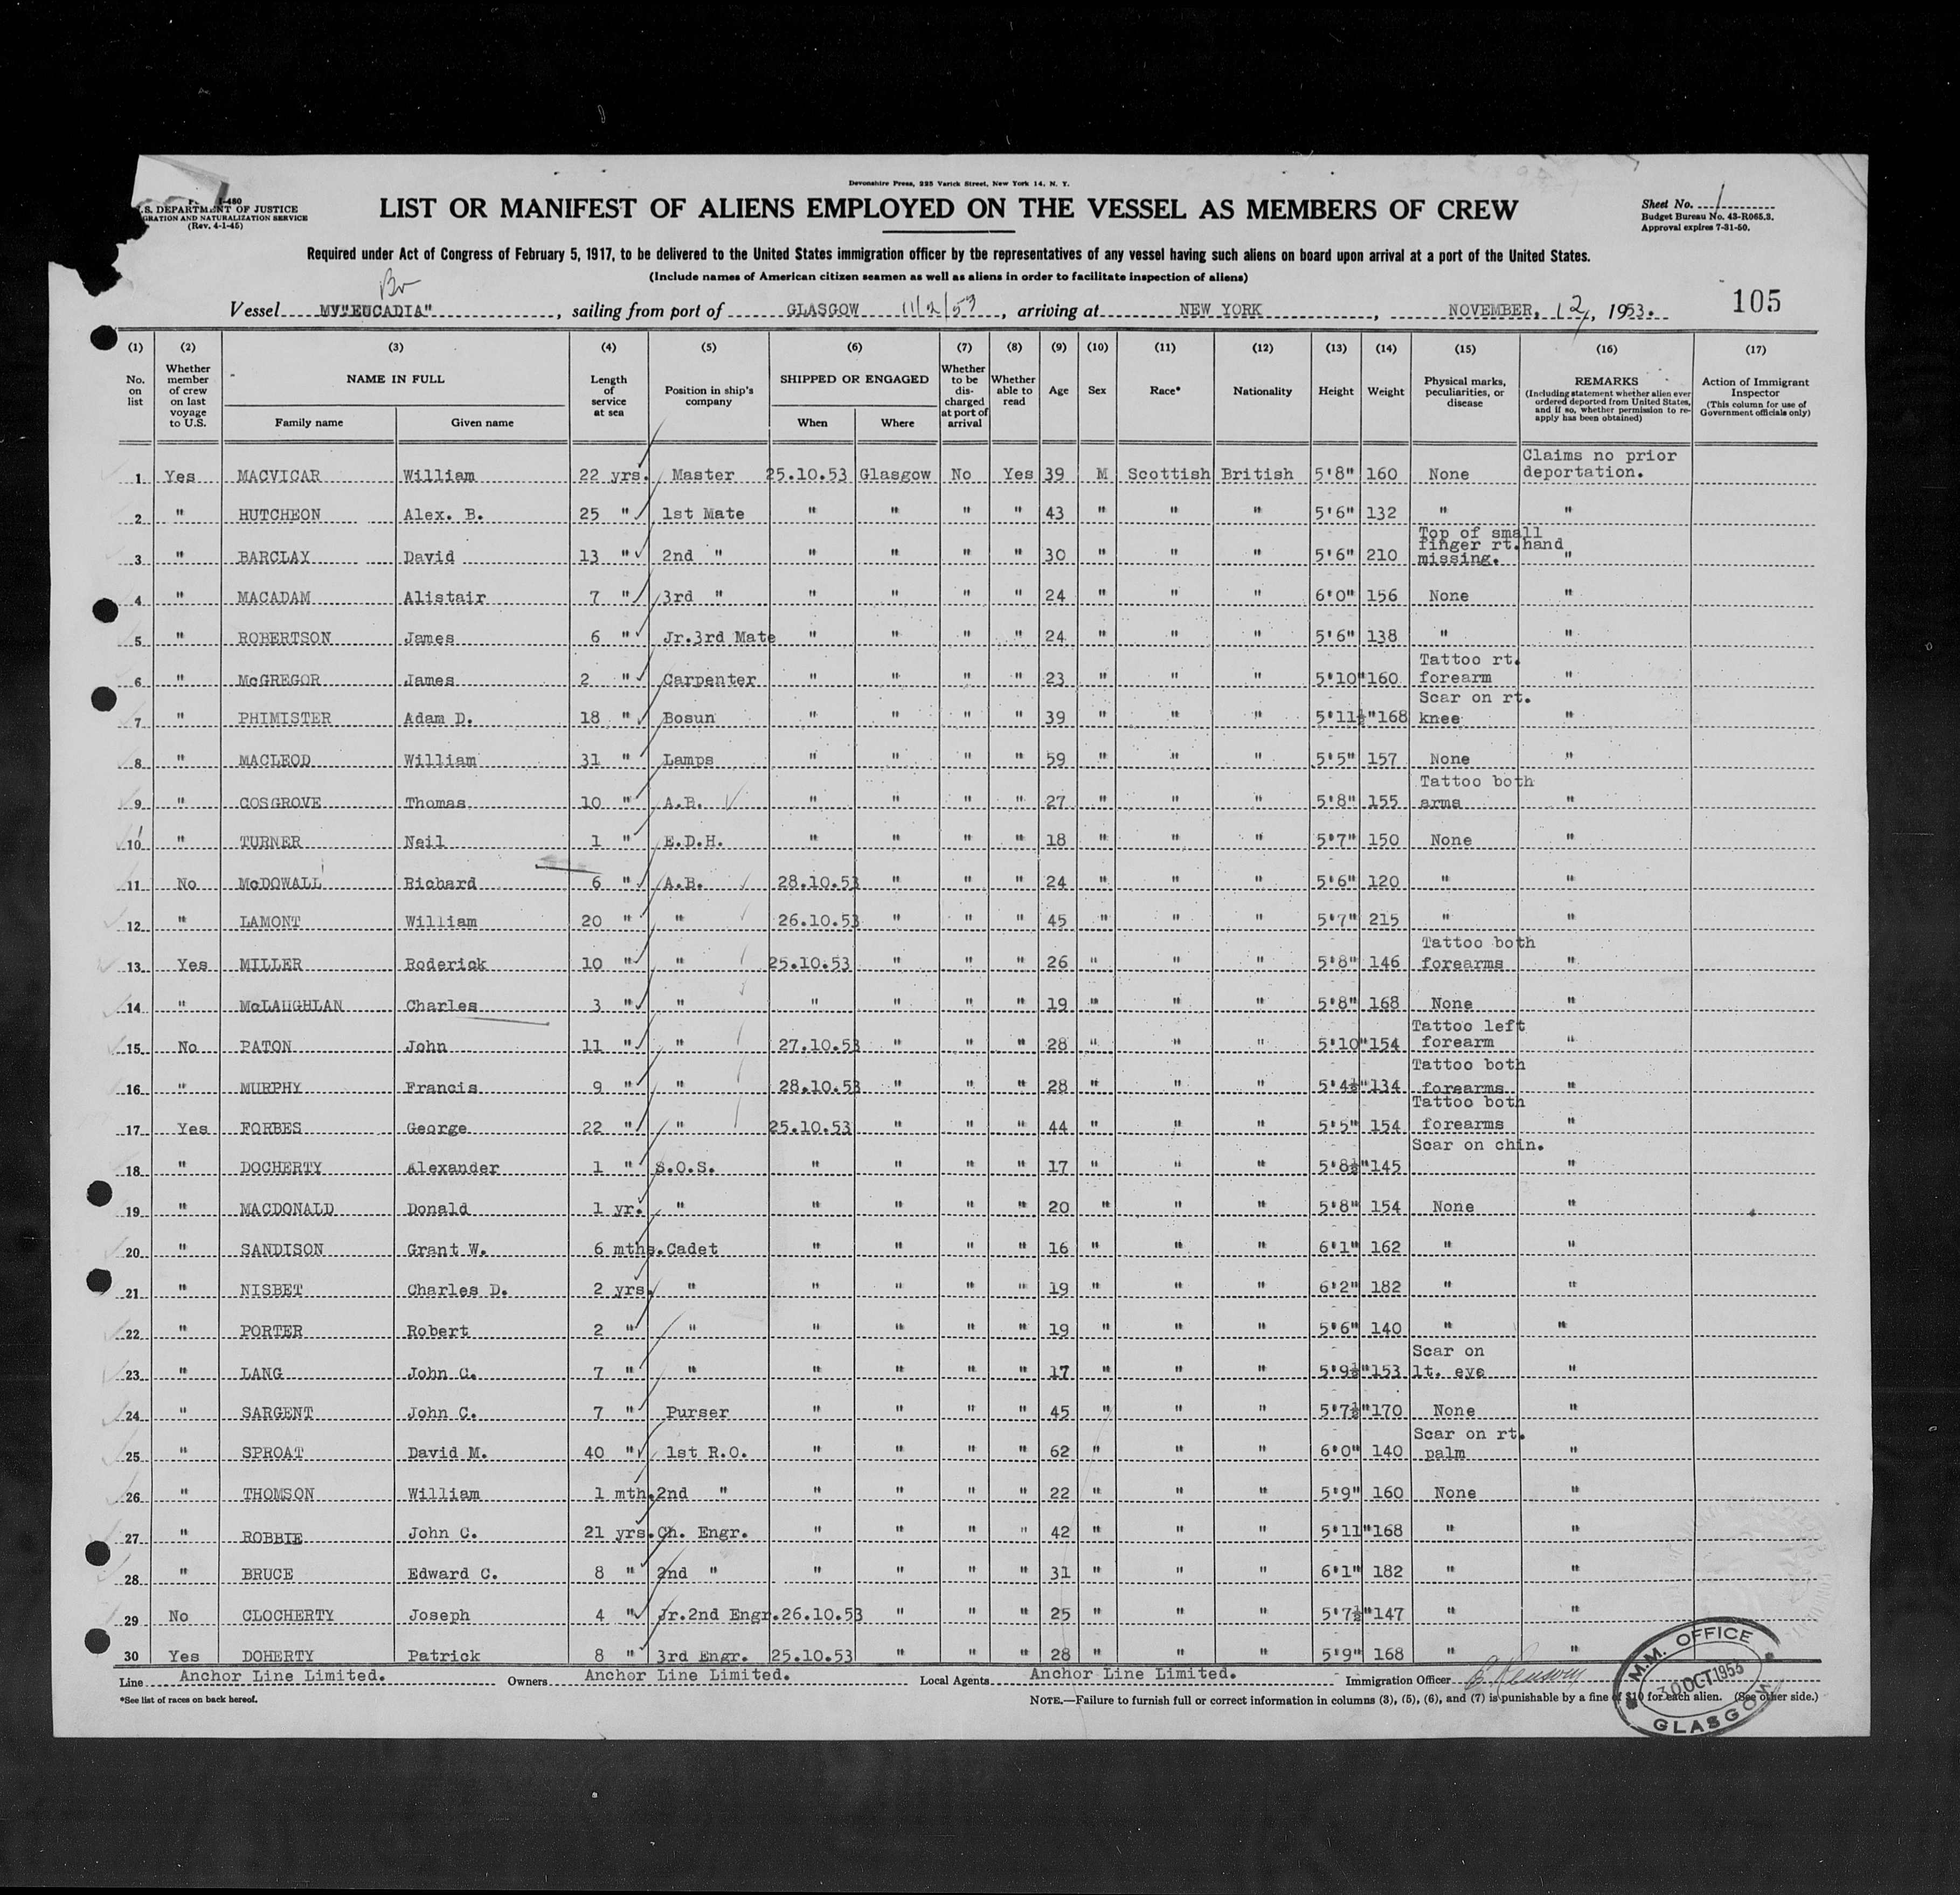 Devonshire Press, 225 Varick Street, New York 14, N. Y.
I-480
S. DEPARTMENT OF JUSTICE
GRATION AND NATURALIZATION SERVICE
(Rev. 4-1-45)
LIST OR MANIFEST OF ALIENS EMPLOYED ON THE VESSEL AS MEMBERS OF CREW
Sheet No. 1
Budget Bureau No. 43-R065.3.
Approval expires 7-31-50.
Required under Act of Congress of February 5, 1917, to be delivered to the United States immigration officer by the representatives of any vessel having such aliens on board upon arrival at a port of the United States.
(Include names of American citizen seamen as well as aliens in order to facilitate inspection of aliens)
Br
Vessel MV"EUCADIA", sailing from port of GLASGOW 11/2/53, arriving at NEW YORK, NOVEMBER, 12, 1953.
105
(1) (2) (3) (4) (5) (6) (7) (8) (9) (10) (11) (12) (13) (14) (15) (16) (17)
No. on list
Whether member of crew on last voyage to U.S.
NAME IN FULL
Family name Given name
Length of service at sea
Position in ship's company
SHIPPED OR ENGAGED
When Where
Whether to be discharged at port of arrival
Whether able to read
Age Sex Race* Nationality Height Weight
Physical marks, peculiarities, or disease
REMARKS
(Including statement whether alien ever ordered deported from United States, and if so, whether permission to re-apply has been obtained)
Action of Immigrant Inspector
(This column for use of Government officials only)
1 Yes MACVICAR William 22 yrs. Master 25.10.53 Glasgow No Yes 39 M Scottish British 5'8" 160 None Claims no prior deportation.
2 " HUTCHEON Alex. B. 25 " 1st Mate " " " " 43 " " " 5'6" 132 " "
3 " BARCLAY David 13 " 2nd " " " " " 30 " " " 5'6" 210 Top of small finger rt.hand missing. "
4 " MACADAM Alistair 7 " 3rd " " " " " 24 " " " 6'0" 156 None "
5 " ROBERTSON James 6 " Jr.3rd Mate " " " " 24 " " " 5'6" 138 " "
6 " McGREGOR James 2 " Carpenter " " " " 23 " " " 5'10" 160 Tattoo rt. forearm "
7 " PHIMISTER Adam D. 18 " Bosun " " " " 39 " " " 5'11½" 168 Scar on rt. knee "
8 " MACLEOD William 31 " Lamps " " " " 59 " " " 5'5" 157 None "
9 " COSGROVE Thomas 10 " A.B. " " " " 27 " " " 5'8" 155 Tattoo both arms "
10 " TURNER Neil 1 " E.D.H. " " " " 18 " " " 5'7" 150 None "
11 No McDOWALL Richard 6 " A.B. 28.10.53 " " " 24 " " " 5'6" 120 " "
12 " LAMONT William 20 " " 26.10.53 " " " 45 " " " 5'7" 215 " "
13 Yes MILLER Roderick 10 " " 25.10.53 " " " 26 " " " 5'8" 146 Tattoo both forearms "
14 " McLAUGHLAN Charles 3 " " " " " " 19 " " " 5'8" 168 None "
15 No PATON John 11 " " 27.10.53 " " " 28 " " " 5'10" 154 Tattoo left forearm "
16 " MURPHY Francis 9 " " 28.10.53 " " " 28 " " " 5'4½" 134 Tattoo both forearms "
17 Yes FORBES George 22 " " 25.10.53 " " " 44 " " " 5'5" 154 Tattoo both forearms "
18 " DOCHERTY Alexander 1 " S.O.S. " " " " 17 " " " 5'8½" 145 Scar on chin. "
19 " MACDONALD Donald 1 yr. " " " " " 20 " " " 5'8" 154 None "
20 " SANDISON Grant W. 6 mths. Cadet " " " " 16 " " " 6'1" 162 " "
21 " NISBET Charles D. 2 yrs. " " " " " 19 " " " 6'2" 182 " "
22 " PORTER Robert 2 " " " " " " 19 " " " 5'6" 140 " "
23 " LANG John C. 7 " " " " " " 17 " " " 5'9½" 153 Scar on lt. eye "
24 " SARGENT John C. 7 " Purser " " " " 45 " " " 5'7½" 170 None "
25 " SPROAT David M. 40 " 1st R.O. " " " " 62 " " " 6'0" 140 Scar on rt. palm "
26 " THOMSON William 1 mth. 2nd " " " " " 22 " " " 5'9" 160 None "
27 " ROBBIE John C. 21 yrs. Ch. Engr. " " " " 42 " " " 5'11" 168 " "
28 " BRUCE Edward C. 8 " 2nd " " " " " 31 " " " 6'1" 182 " "
29 No CLOCHERTY Joseph 4 " Jr.2nd Engr. 26.10.53 " " " 25 " " " 5'7½" 147 " "
30 Yes DOHERTY Patrick 8 " 3rd Engr. 25.10.53 " " " 28 " " " 5'9" 168 " "
Line Anchor Line Limited. Owners Anchor Line Limited. Local Agents Anchor Line Limited. Immigration Officer
*See list of races on back hereof.
NOTE.—Failure to furnish full or correct information in columns (3), (5), (6), and (7) is punishable by a fine of $10 for each alien. (See other side.)
M.M. OFFICE
30 OCT 1953
GLASGOW